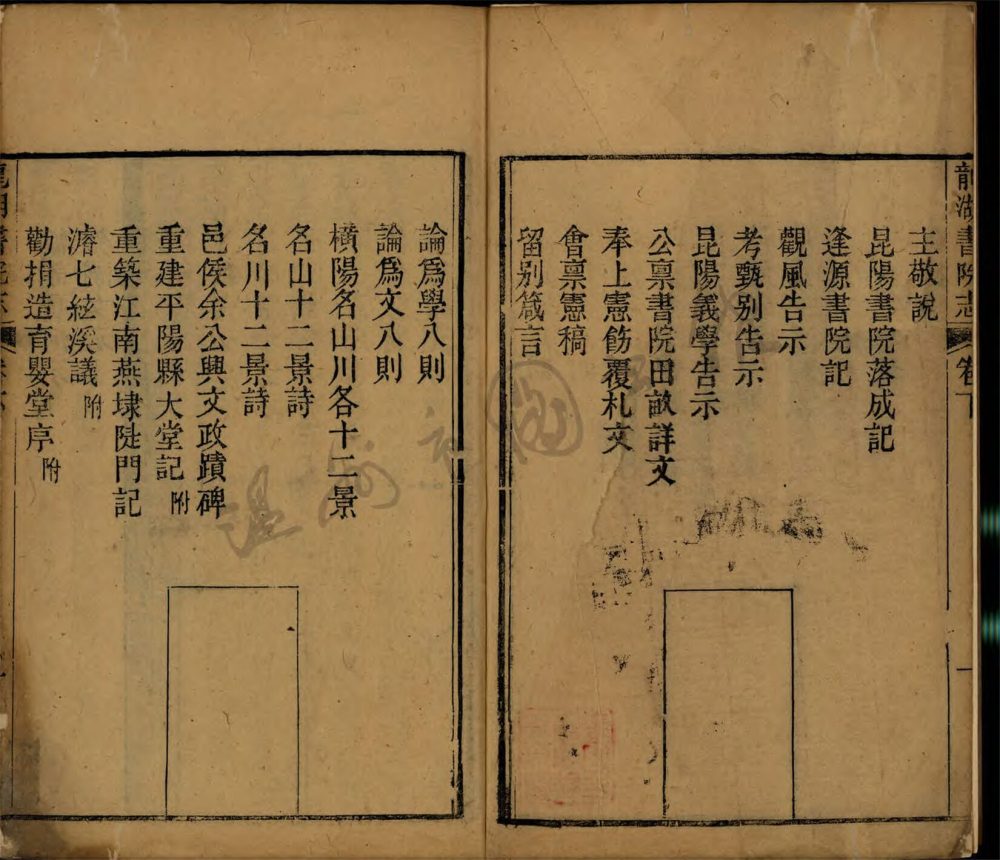 龍湖書院志 卷下
主敬說
昆陽書院落成記
逢源書院記
觀風告示
考甄别告示
昆陽義學告示
公禀書院田畝詳文
奉上憲飭覆札文
會禀憲稿
留别箴言
一
論爲學八則
論爲文八則
橫陽名山川各十二景
名山十二景詩
名川十二景詩
邑侯余公興文政蹟碑
重建平陽縣大堂記 附
重築江南燕埭陡門記
濬七絃溪議 附
勸捐造育嬰堂序 附